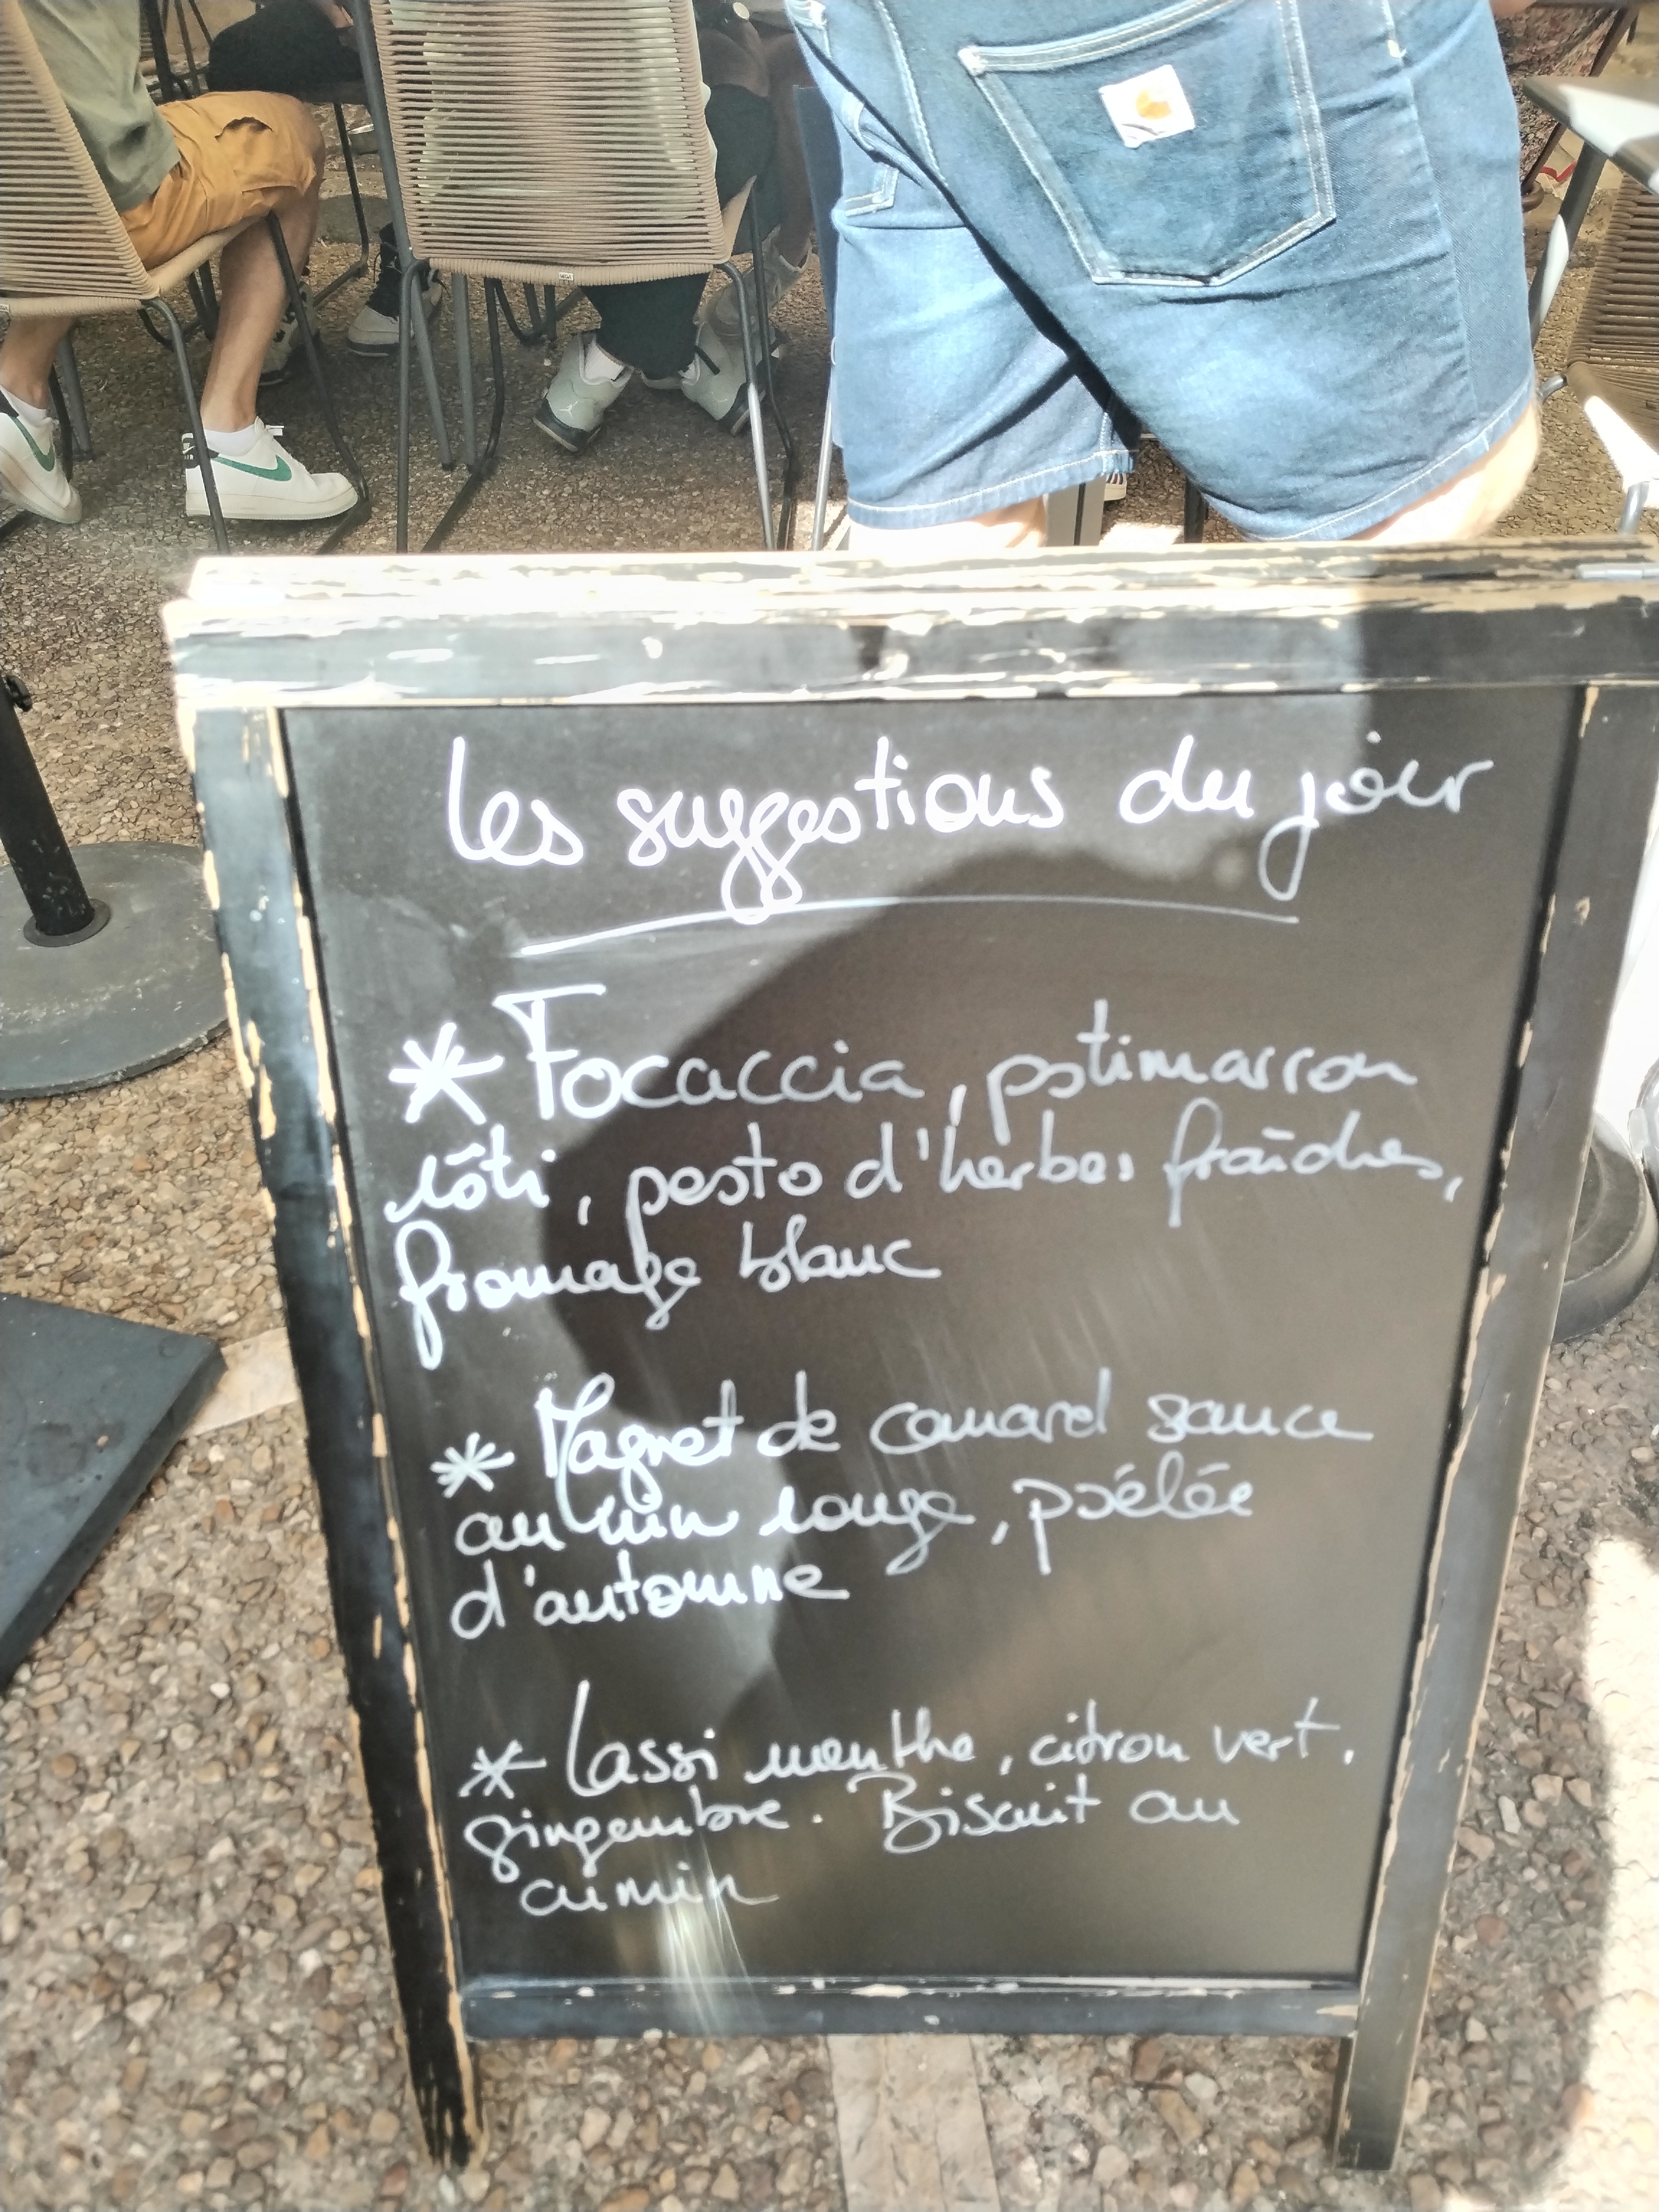 les suggestions du jour
* Focaccia, potimarron
rôti, pesto d'herbes fraîches,
fromage blanc
* Magret de canard sauce
au vin rouge, poêlée
d'automne
* Lassi menthe, citron vert,
gingembre. Biscuit au
cumin